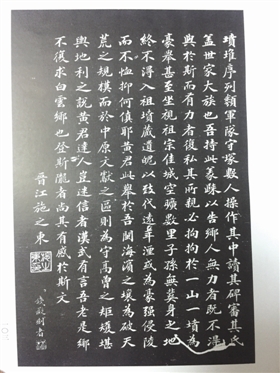 墳堆序列類軍隊守塚數人操作其中讀其碑審其氏
蓋世家大族也吾持此義躰以告鄉人無力者既不得
與於斯而有力者復私其所親必拘拘於一山一墳為
豪舉甚至坐視祖宗佳城空曠數里子孫無葬身之地
終不得入祖墳蔵道呢以致代遠年湮或為豪強侵陵
而不恤抑何慎耶黃君此舉於吾閩海濱之壤為破天
荒之規模而於中原文獻之區則為守高曾之矩矱堪
與地利之說黃君達人豈迷信者漢武有言吾老是鄉
不復求白雲鄉也登斯隴者尚其有感於斯文
晉江施之東